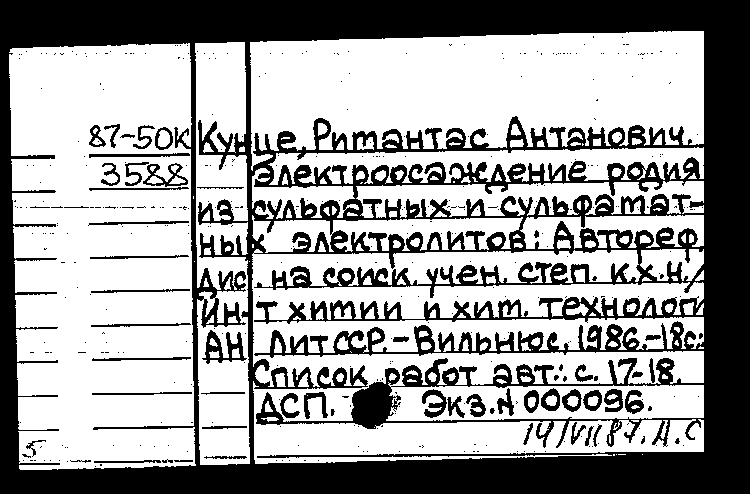 87-50К Кунце, Римантас Антанович.
3588 Электроосаждение родия
из сульфатных и сульфамат-
ных электролитов: Автореф.
дис. на соиск. учен. степ. к.х.н./
Ин-т химии и хим. технологи
АН ЛитССР.-Вильнюс, 1986.-18с.:
Список работ авт.: с. 17-18.
ДСП. Экз.N 000096.
14/VII87. А.С
5